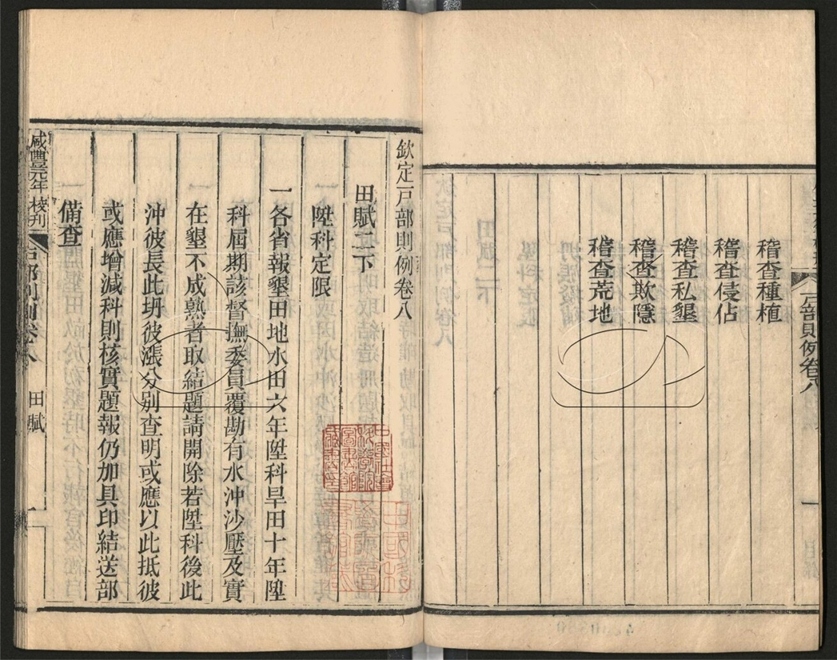 稽查種植
稽查侵佔
稽查私墾
稽查欺隱
稽查荒地
戸部則例卷八
欽定戸部則例卷八
田賦二下
陞科定限
一各省報墾田地水田六年陞科旱田十年陞
科屆期該督撫委員覆勘有水沖沙壓及實
在墾不成熟者取結題請開除若陞科後此
沖彼長此坍彼漲分別查明或應以此抵彼
或應增減科則核實題報仍加具印結送部
備查
咸豐元年校刊
戸部則例卷八
田賦
一